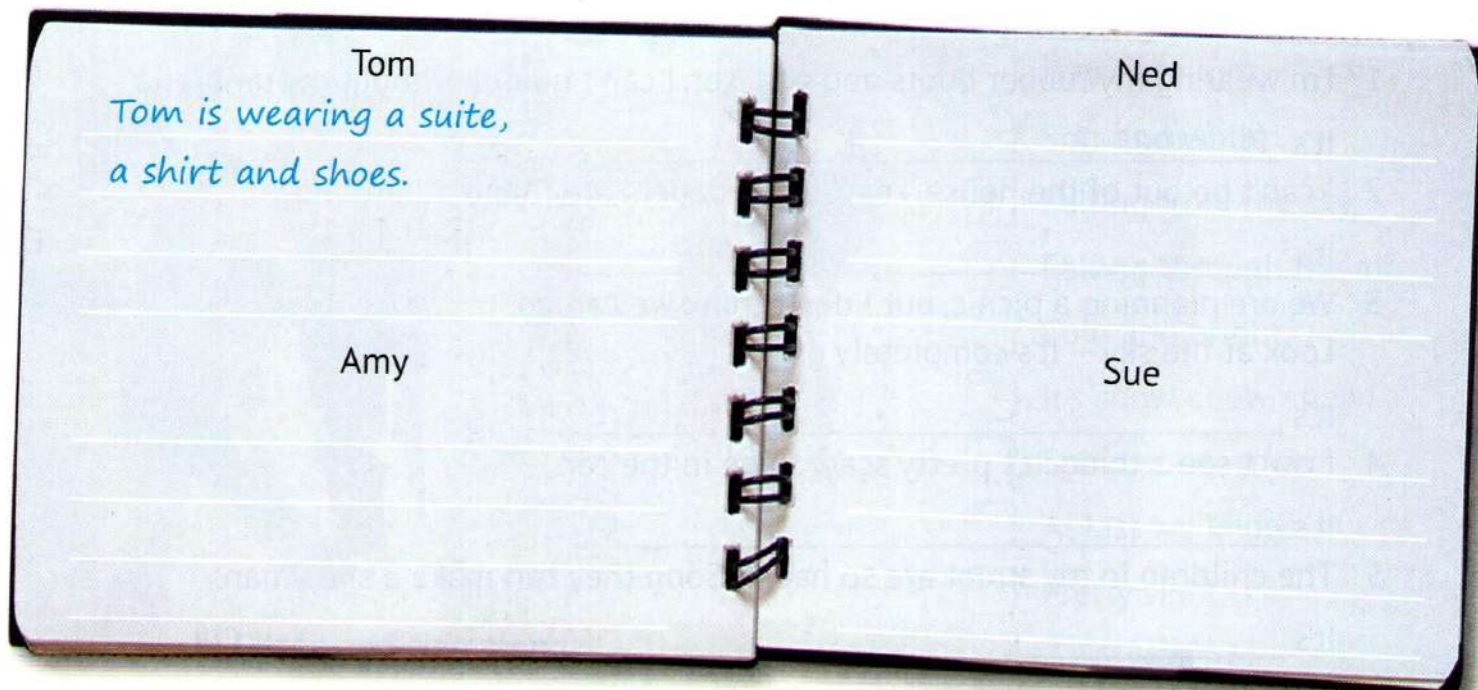 Tom
Tom is wearing a suite,
a shirt and shoes.
Amy
Ned
Sue